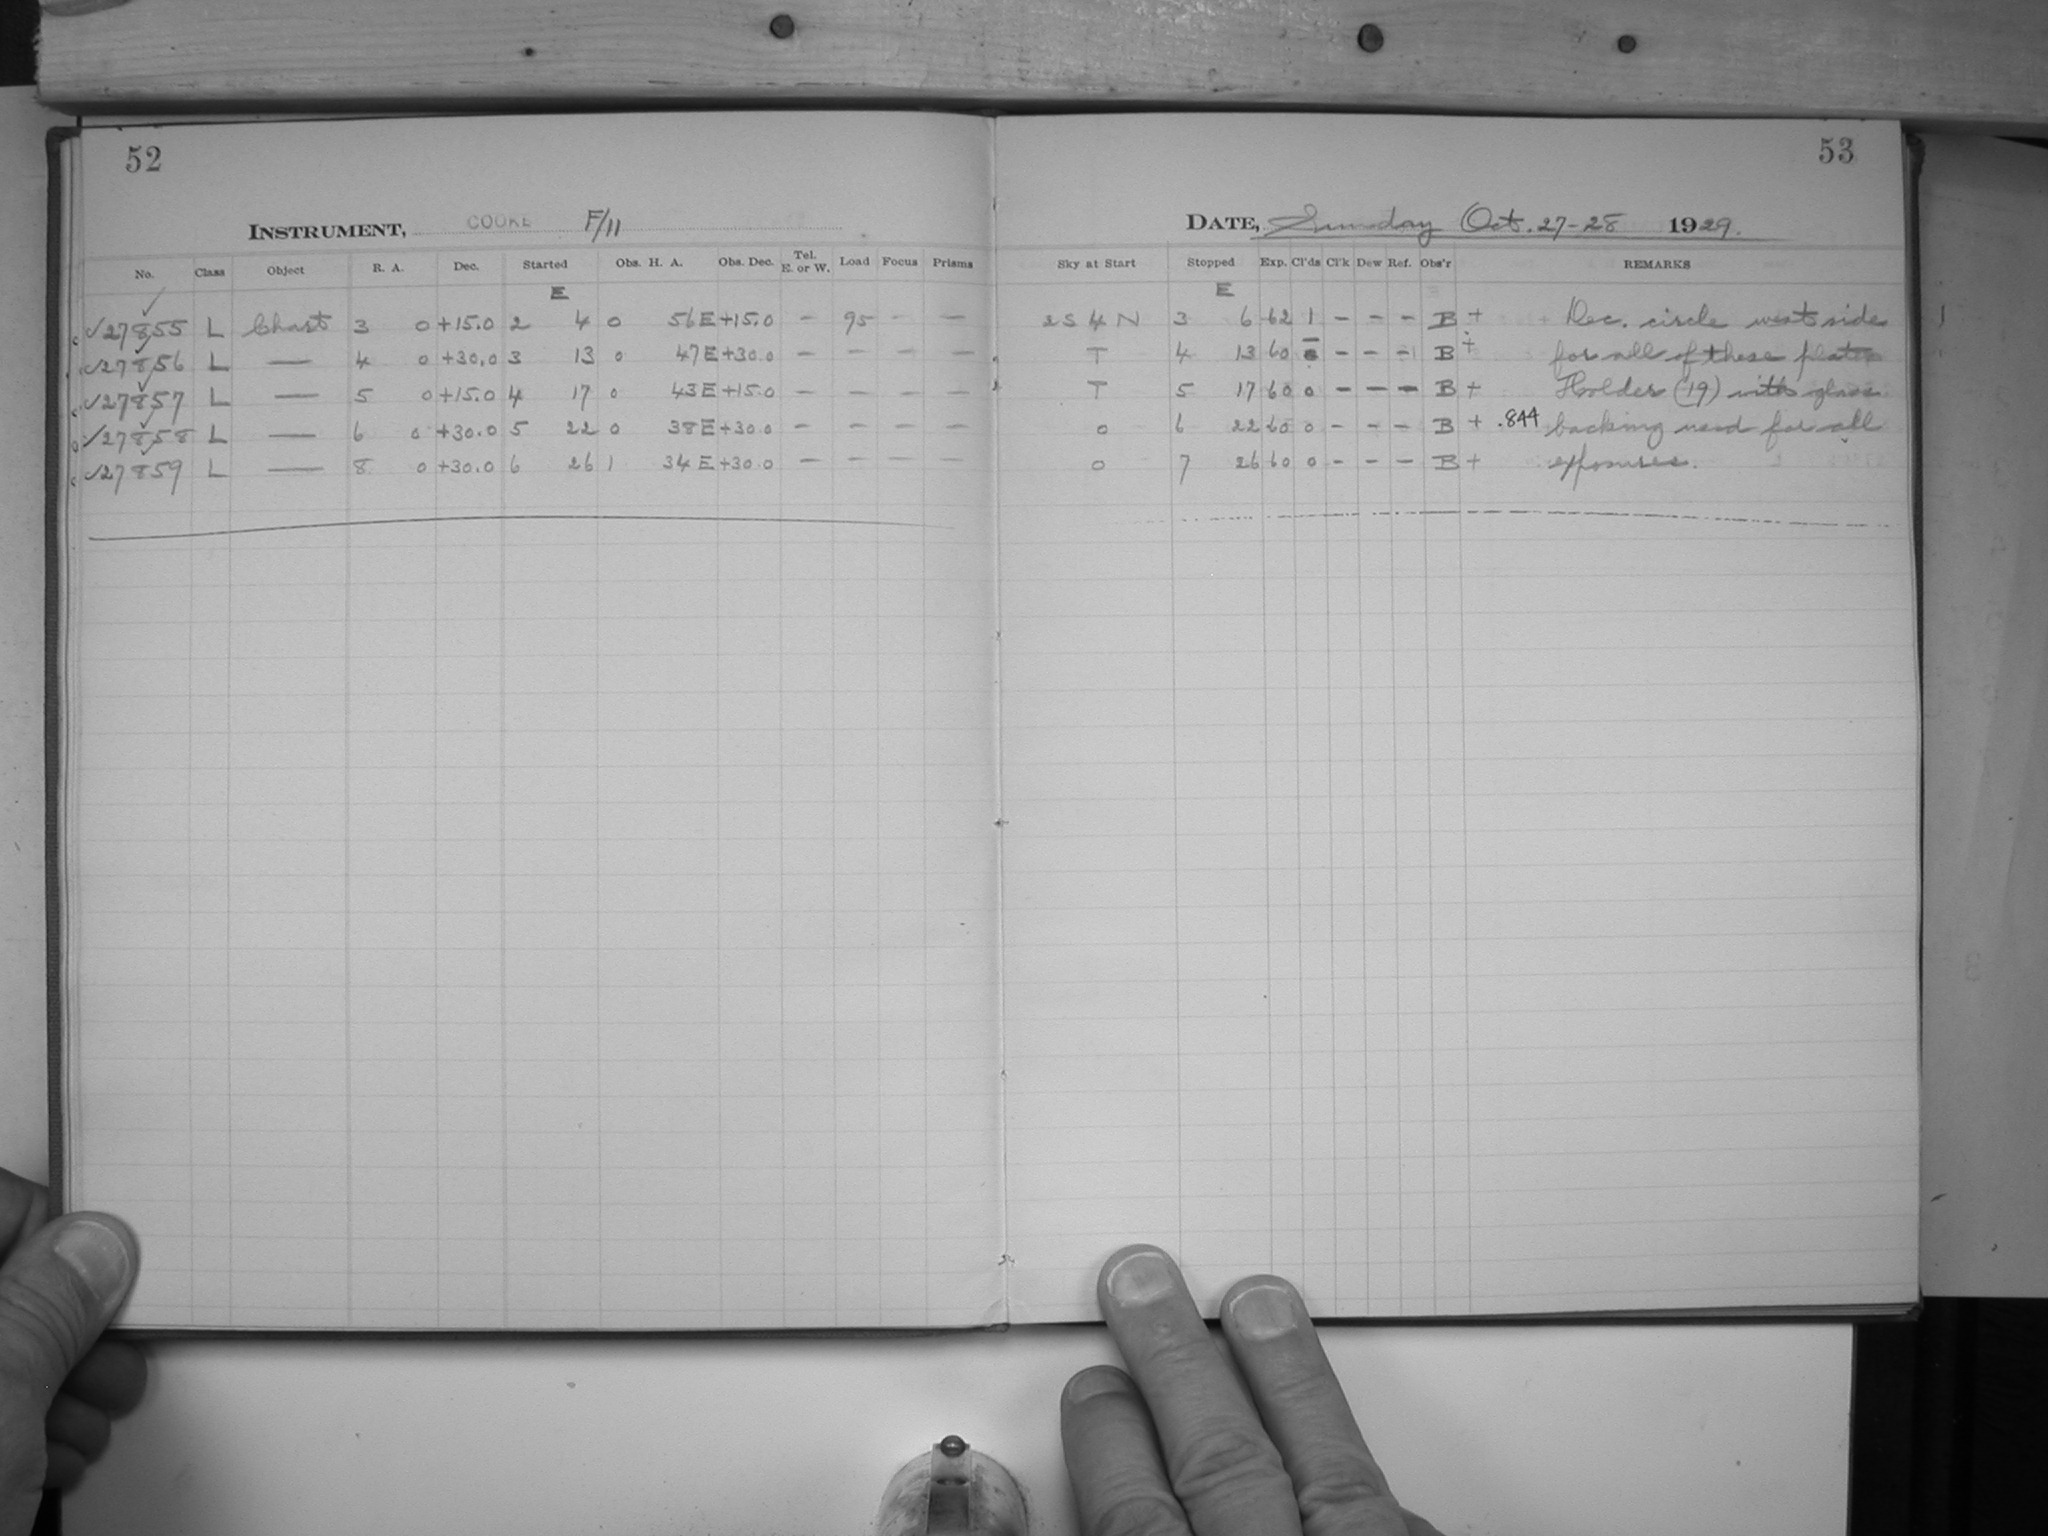 52
INSTRUMENT, COOKE F/11
No. Class Object R. A. Dec. Started Obs. H. A. Obs. Dec. Tel. E. or W. Load Focus Prisms
E
✓27855 L Chart 3 0 +15.0 2 4 0 56 E +15.0 – 95 – –
✓27856 L — 4 0 +30.0 3 13 0 47 E +30.0 – – – –
✓27857 L — 5 0 +15.0 4 17 0 43 E +15.0 – – – –
✓27858 L — 6 0 +30.0 5 22 0 38 E +30.0 – – – –
✓27859 L — 8 0 +30.0 6 26 1 34 E +30.0 – – – –
53
DATE, Sunday Oct. 27-28 1929.
Sky at Start Stopped Exp. Cl'ds Cl'k Dew Ref. Obs'r REMARKS
E
2 S 4 N 3 6 62 1 – – – B + Dec. circle west side
T 4 13 60 – – – B + for all of these plates
T 5 17 60 0 – – – B + Holder (19) with glass
0 6 22 60 0 – – – B + .844 backing used for all
0 7 26 60 0 – – – B + exposures.